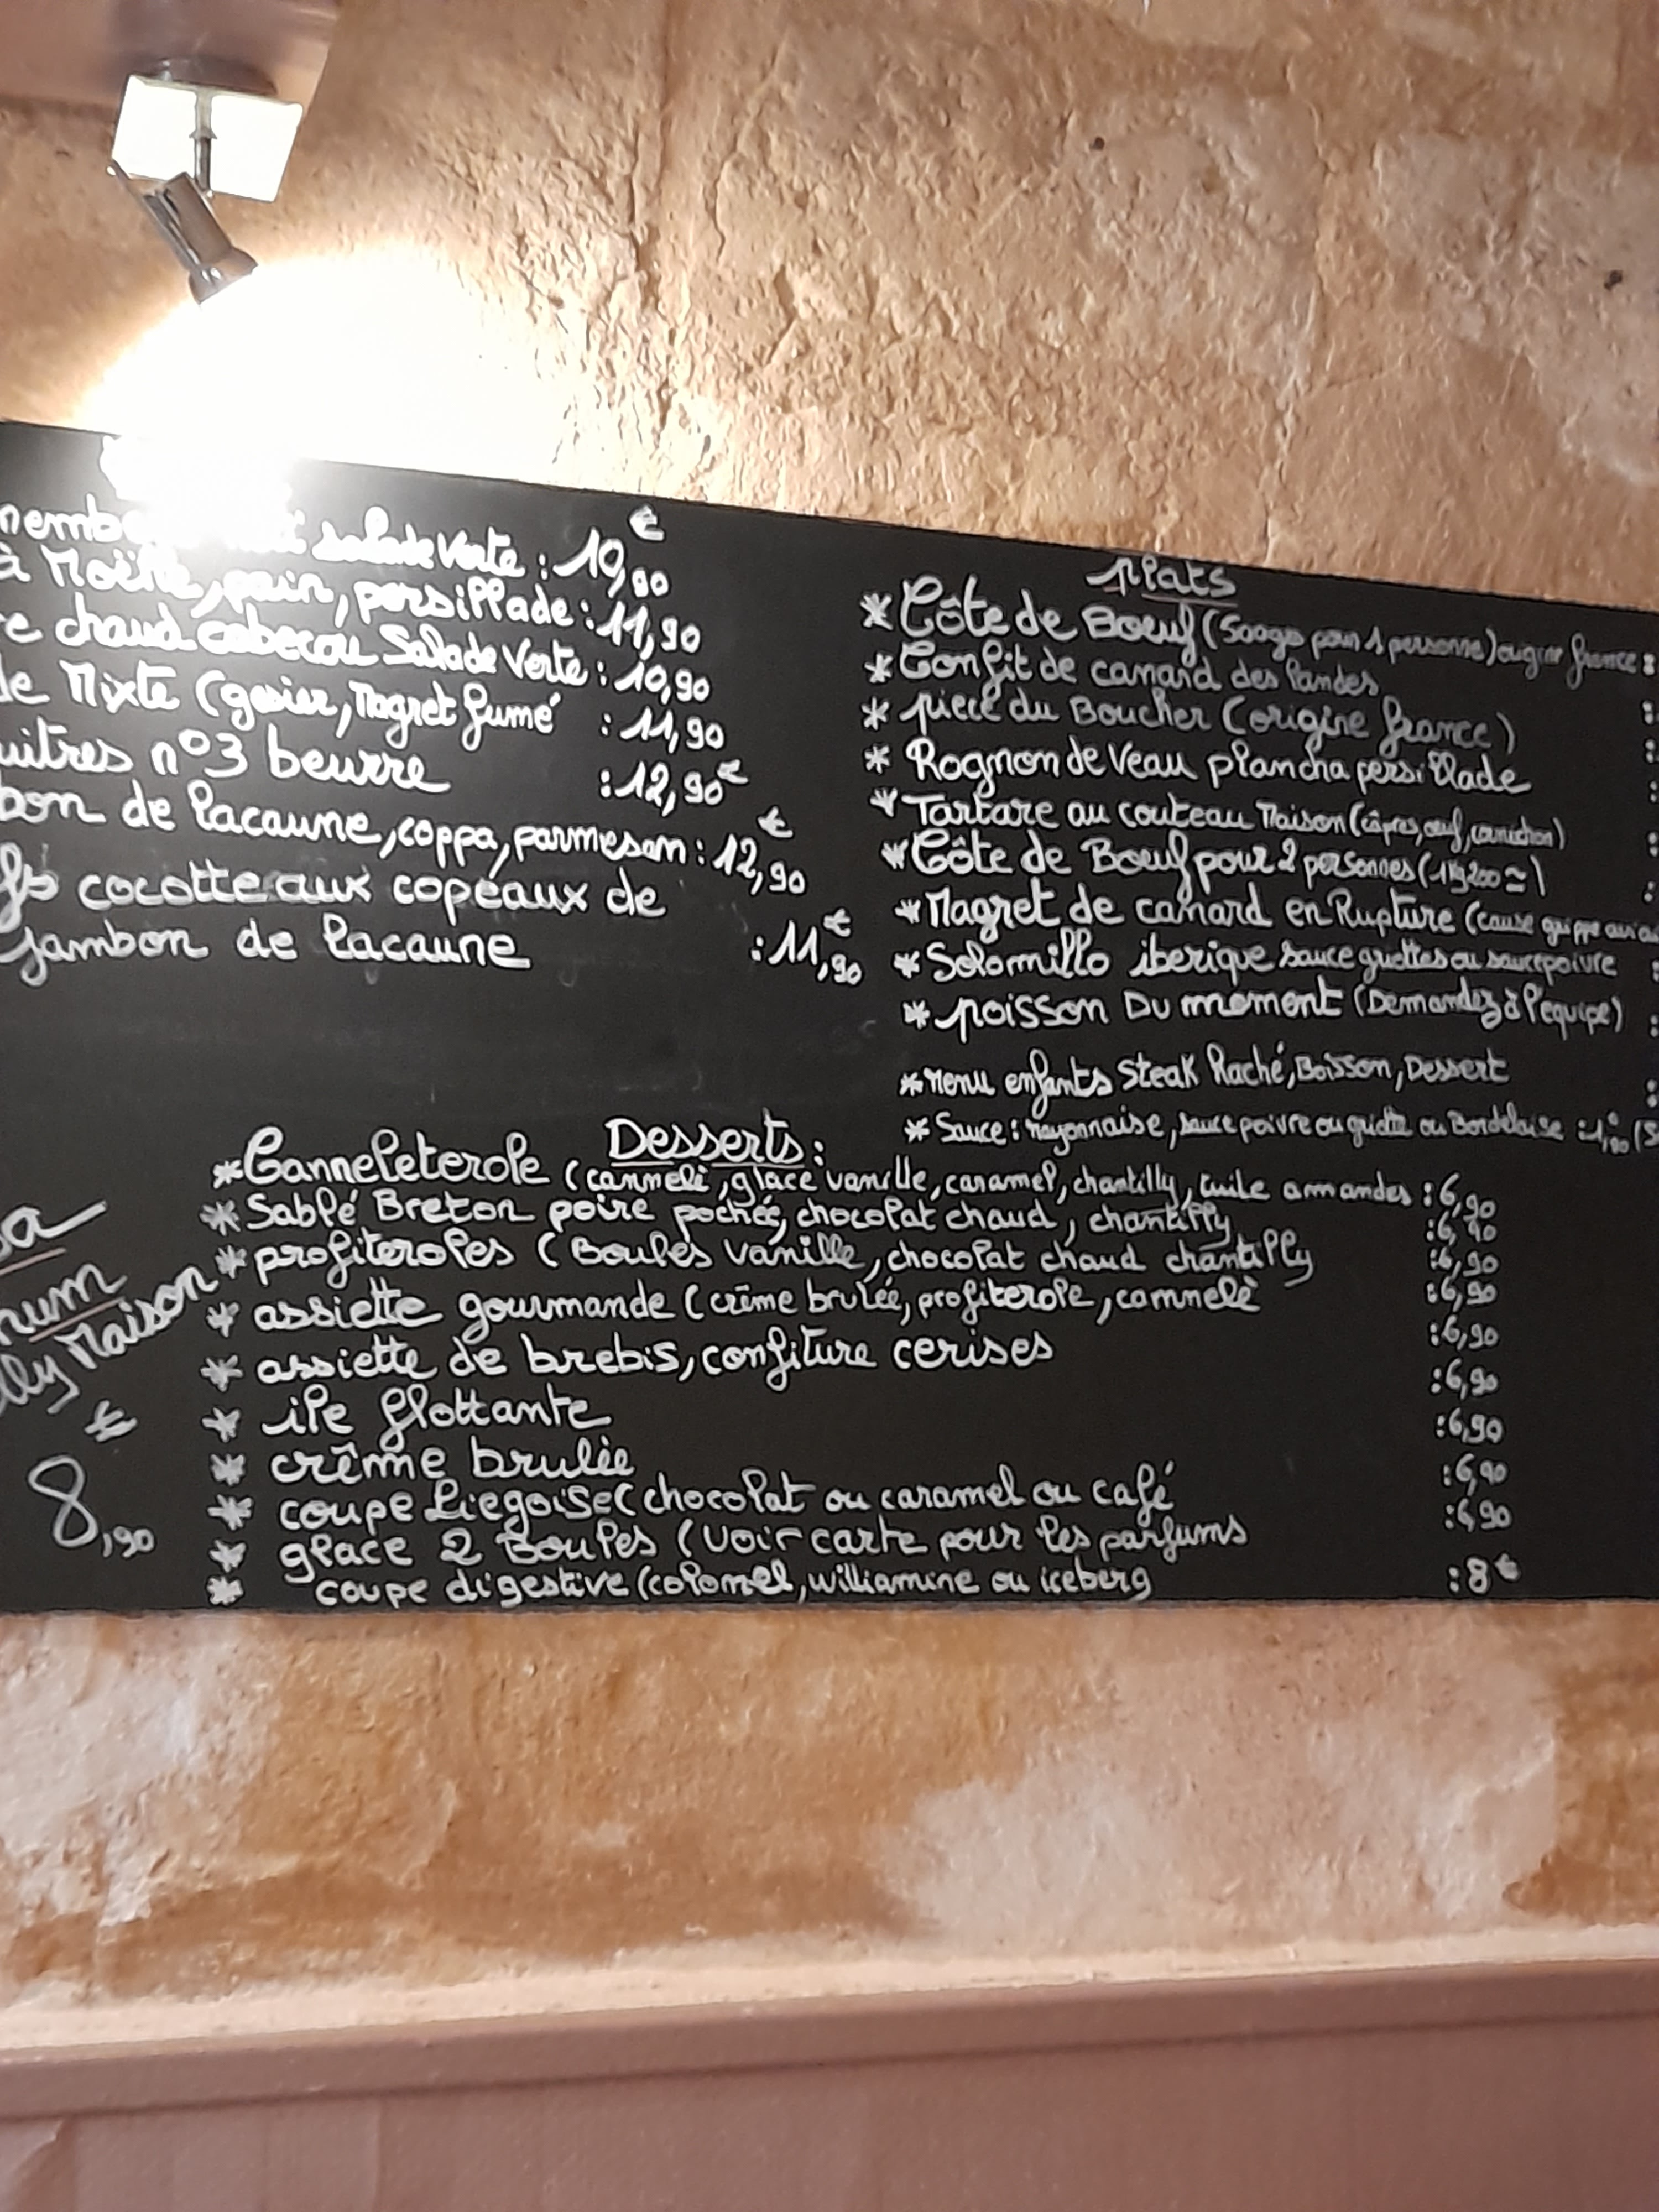 salade verte : 10,90 €
à Moëlle, pain, persillade : 11,90
chaud cabecou Salade Verte : 10,90
de Mixte (gesier, Magret fumé : 11,90
uitres n°3 beurre : 12,90 €
bon de lacaune, coppa, parmesan : 12,90 €
cocotte aux copeaux de
jambon de lacaune : 11,90 €
plats
* Côte de Boeuf (500grs pour 1 personne) origine france :
* Confit de canard des landes
* piece du Boucher (origine france) :
* Rognon de Veau plancha persillade :
* Tartare au couteau Maison (câpres, oeuf, cornichon) :
* Côte de Boeuf pour 2 personnes (1kg200 ≃) :
* Magret de canard en Rupture (cause grippe
* Solomillo iberique sauce griottes ou sauce poivre :
* poisson Du moment (Demandez à l'equipe) :
* Menu enfants Steak haché, Boisson, Dessert :
* Sauce : mayonnaise, sauce poivre ou griotte ou Bordelaise : 1,90 € (S
Desserts :
* Canneleterole (cannelé, glace vanille, caramel, chantilly, tuile amandes : 6,90
* Sablé Breton poire pochée, chocolat chaud, chantilly : 6,90
* profiteroles (Boules vanille, chocolat chaud chantilly : 6,90
* assiette gourmande (crême brulée, profiterole, cannelè : 6,90
* assiette de brebis, confiture cerises : 6,90
* ile flottante : 6,90
* crême brulée : 6,90
* coupe Liegoise (chocolat ou caramel ou café : 6,90
* glace 2 Boules (Voir carte pour les parfums : 6,90
* coupe digestive (colonel, williamine ou iceberg : 8 €
Maison
€
8,90